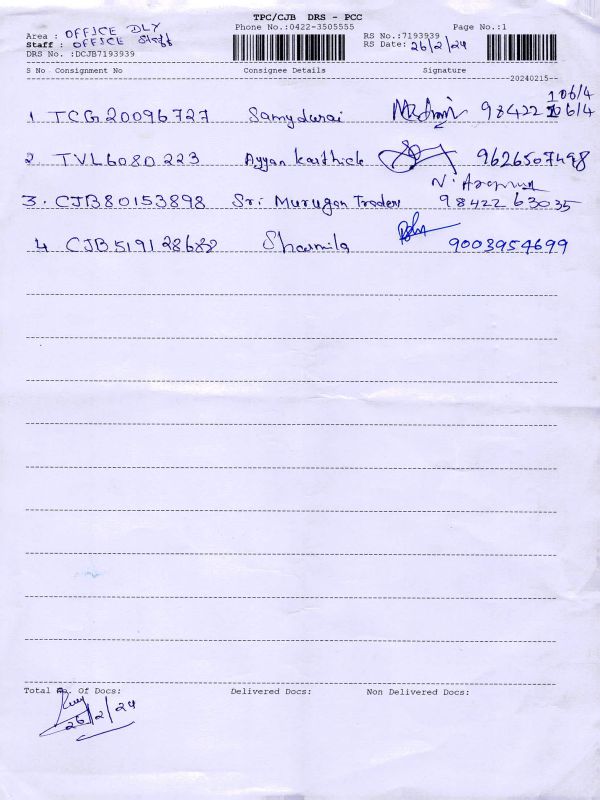 TPC/CJB DRS - PCC
Phone No.:0422-3505555
Page No.:1
Area : OFFICE DLY
RS No.:7193939
Staff : OFFICE
RS Date: 26/2/24
DRS No. :DCJB7193939
S No Consignment No Consignee Details Signature
20240215
1 TCG20096727 Samydurai 98422 106/4
2 TVL6080223 Ayyan karthick 9626507498
3. CJB80153898 Sri Murugan Traders 98422 63035
4 CJB519128688 Sharmila 9003954699
Total No. Of Docs: Delivered Docs: Non Delivered Docs:
26/2/24